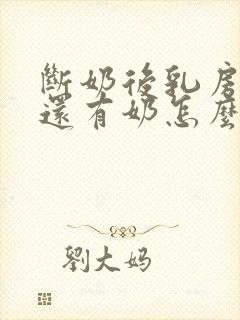 斷奶後乳房
還有奶怎麼
劉大妈